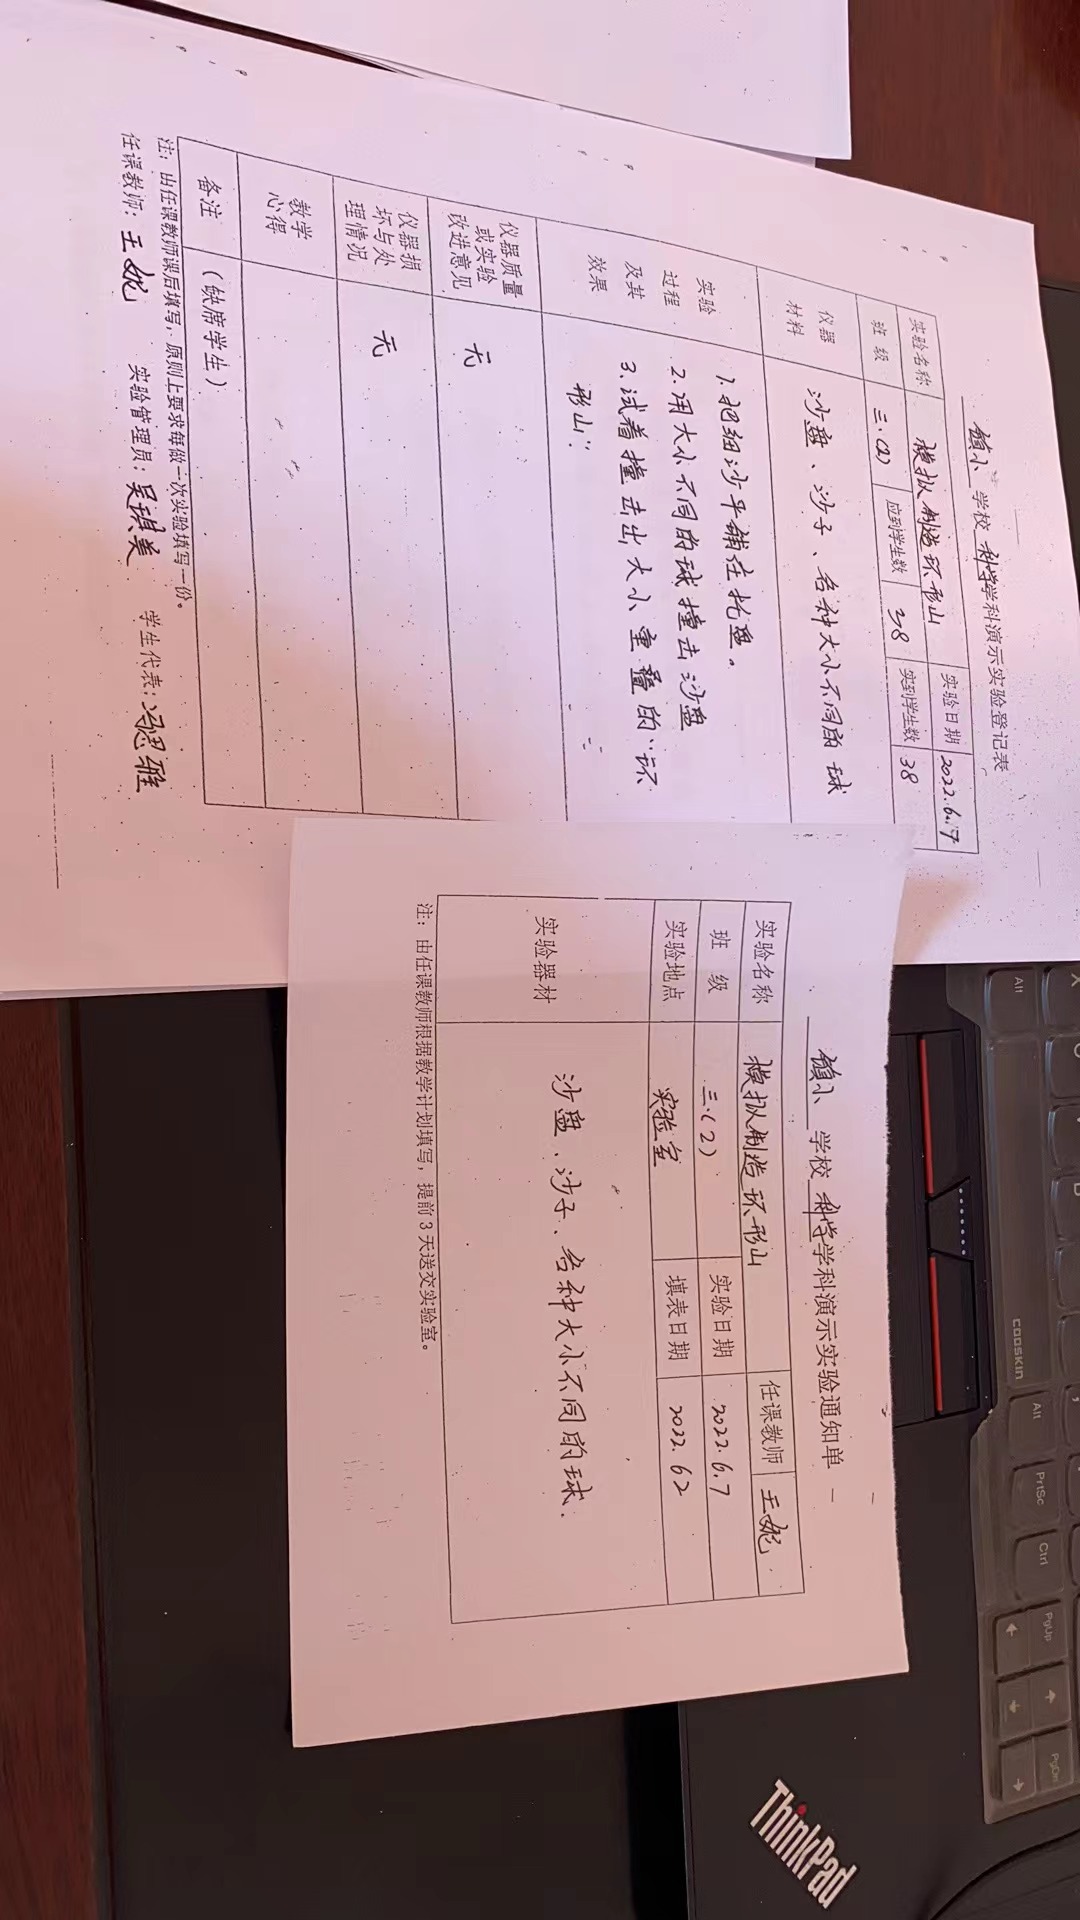 镇小学校科学学科演示实验登记表
实验名称 模拟制造环形山 实验日期 2022.6.7
班 级 三.(2) 应到学生数 38 实到学生数 38
仪器
材料
沙盘、沙子、各种大小不同的球
实验
过程
及其
效果
1.把细沙平铺在托盘。
2.用大小不同的球撞击沙盘
3.试着撞击出大小重叠的“环
形山”.
仪器质量
或实验
改进意见
无
仪器损
坏与处
理情况
无
教学
心得
备注 (缺席学生)
注：由任课教师课后填写，原则上要求每做一次实验填写一份。
任课教师：王妮 实验管理员：吴琪美 学生代表：冯思雅
镇小学校科学学科演示实验通知单
实验名称 模拟制造环形山 任课教师 王妮
班 级 三.(2) 实验日期 2022.6.7
实验地点 实验室 填表日期 2022.6.2
实验器材 沙盘、沙子、各种大小不同的球.
注：由任课教师根据教学计划填写，提前3天送交实验室。
Alt
COOSKIN
Alt
PrtSc
Ctrl
PgUp
PgDn
ThinkPad